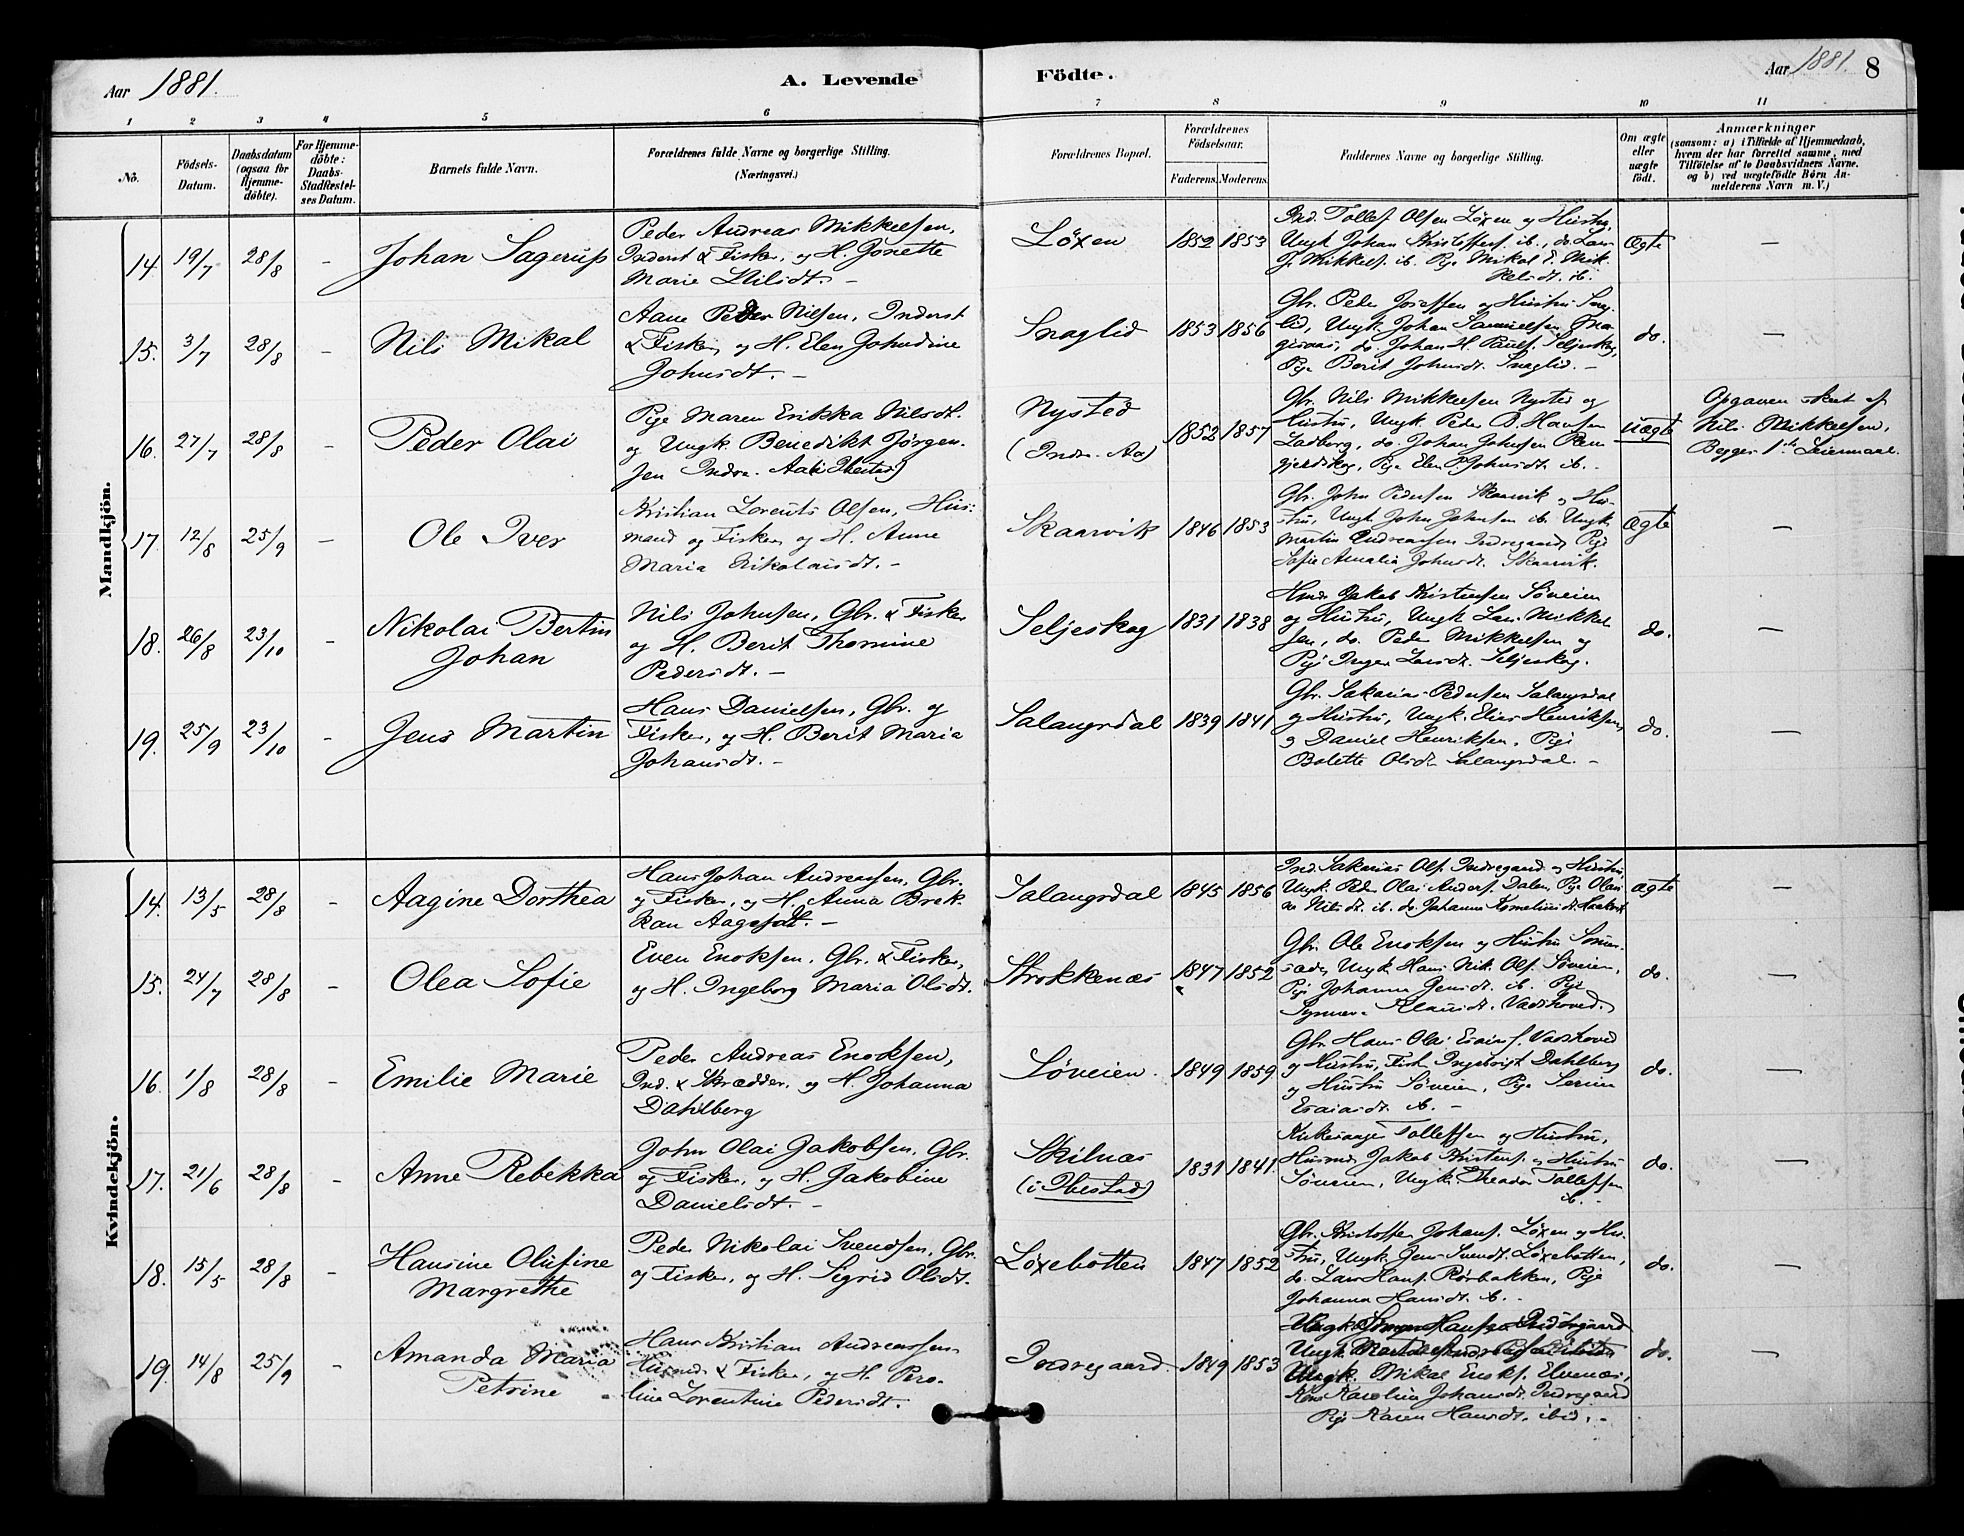 Aar 1881.
A. Levende Födte.
Aar 1881. 8
1 2 3 4 5 6 7 8 9 10 11
No. Födsels-Datum. Daabsdatum (ogsaa for Hjemmedöbte). For Hjemmedöbte: Daabs-Stadfæstelses Datum. Barnets fulde Navn. Forældrenes fulde Navne og borgerlige Stilling. (Næringsvei.) Forældrenes Bopæl. Forældrenes Födselsaar. Faderens. Moderens. Faddernes Navne og borgerlige Stilling. Om ægte eller uægte födt. Anmærkninger (saasom: a) i Tilfælde af Hjemmedaab, hvem der har forrettet samme, med Tilföielse af to Daabsvidners Navne. og b) ved uægtefödte Börn Anmelderens Navn m. V.)
Mandkjön.
14. 19/7 28/8 - Johan Sagerup
Peder Andreas Mikkelsen,
Inderst & Fisker, og H. Jonette
Marie Nilsdt. -
Løxen 1852 1853
Ind. Tollef Olsen Løxen og Hustru,
Ungk. Johan Kristoffers. ib., do. Lars
J. Mikkels. ib. Pige Mikal E. Mik-
kelsdt. ib.
Ægte -
15. 3/7 28/8 - Nils Mikal
Aane Peder Nilsen, Inderst
& Fisker, og H. Elen Johndine
Johnsdt. -
Snaglid 1853 1856
Gbr. Peder Joseffsen og Hustru Snag-
lid, Ungk. Johan Samuelsen
do. Johan H. Pauls. Seljeskog,
Pige Berit Johnsdt. Snaglid. -
do. -
16. 27/7 28/8 - Peder Olai
Pige Maren Erikka Nilsdt.
og Ungk. Benedikt Jørgen-
sen Indre-
Nysted
(Indr. Aa) 1852 1857
Gbr. Nils Mikkelsen Nysted og
Hustru, Ungk. Peder B. Hansen
Ladberg, do. Johan Johnsen
Pige Elen P. Johnsdt. ib. -
uægte
Opgaven skeet af
Nils Mikkelsen,
Begges 1ste Leiermaal.
17. 12/8 25/9 - Ole Iver
Kristian Lorents Olsen, Hus-
mand og Fisker, og H. Anne
Maria Nikolaisdt. -
Skaarvik 1846 1853
Gbr. John Pedersen Skaarvik og Hu-
stru, Ungk. John Johnsen ib. Ungk.
Martin Andreassen Indregaard, Pige
Sofie Amalia Johnsdt. Skaarvik.
Ægte -
18. 26/8 23/10 - Nikolai Bertin
Johan
Nils Johnsen, Gbr. & Fisker
og H. Berit Thomine
Pedersdt. -
Seljeskog 1831 1838
Hmd. Jakob Kristensen Søveien
og Hustru, Ungk. Lars Mikkel-
sen, do. Peder Mikkelsen og
Pige Inger Larsdt. Seljeskog.
do. -
19. 25/9 23/10 - Jens Martin
Hans Danielsen, Gbr. og
Fisker, og H. Berit Maria
Johansdt. -
Salangsdal 1839 1841
Gbr. Sakarias Pedersen Salangsdal
og Hustru, Ungk. Elias Henriksen
og Daniel Henriksen, Pige
Bolette Olsdt. Salangsdal. -
do. -
Kvindekjön.
14. 13/5 28/8 - Aagine Dorthea
Hans Johan Andreassen, Gbr.
og Fisker, og H. Anna Brek-
kan Aagesdt. -
Salangsdal 1845 1856
Ind. Sakarias Ols. Indregaard og Hustru,
Ungk. Peder Olai Anders. Dalen, Pige Olau-
 Nilsdt. ib. do. Johanna Korneliusdt.
Ægte -
15. 24/7 28/8 - Olea Sofie
Even Enoksen, Gbr. & Fisker,
og H. Ingeborg Maria Olsdt.
Strokkenæs 1847 1852
Gbr. Ole Enoksen og Hustru
Ungk. Hans Nik. Ols. Søveien,
Pige Johanna Jensdt. ib. Pige
Klausdt. Vasshoved.
do. -
16. 1/8 28/8 - Emilie Marie
Peder Andreas Enoksen,
Ind. & Skrædder, og H. Johanna
Dahlberg
Søveien. 1849 1859
Gbr. Hans Olai Esaias. Vasshoved
og Hustru, Fisk. Ingebrigt Dahlberg
og Hustru Søveien, Pige Serine
Esaiasdt. ib. -
do. -
17. 21/6 28/8 - Anne Rebekka
John Olai Jakobsen, Gbr.
og Fisker, og H. Jakobine
Danielsdt. -
Skilnæs
(i Ibestad) 1831 1841.
Kirkesanger Tollefsen og Hustru,
Husmd. Jakob Kristens. og Hustru
Søveien, Ungk. Theodor Tollefsen
ib. -
do. -
18. 15/5 28/8 - Hansine Olufine
Margrethe
Peder Nikolai Svendsen, Gbr.
og Fisker, og H. Sigrid Olsdt.
Løxebotten 1847 1852
Gbr. Kristoffer Johans. Løxen og Hu-
stru, Ungk. Jens Svends. Løxebotten,
do. Lars Hans. Rørbakken, Pige
Johanna Hansdt. ib. -
do. -
19. 14/8 25/9 - Amanda Maria
Petrine
Hans Kristian Andreassen
Husmd. & Fisker, og H. Pero-
line Lorentine Pedersdt.
Indregaard. 1849 1853
Ungk. Mikal Enoks. Elvenæs,
Kone Karoline Johansdt. Indregaard
Pige Karen Hansdt. ibid. -
do. -